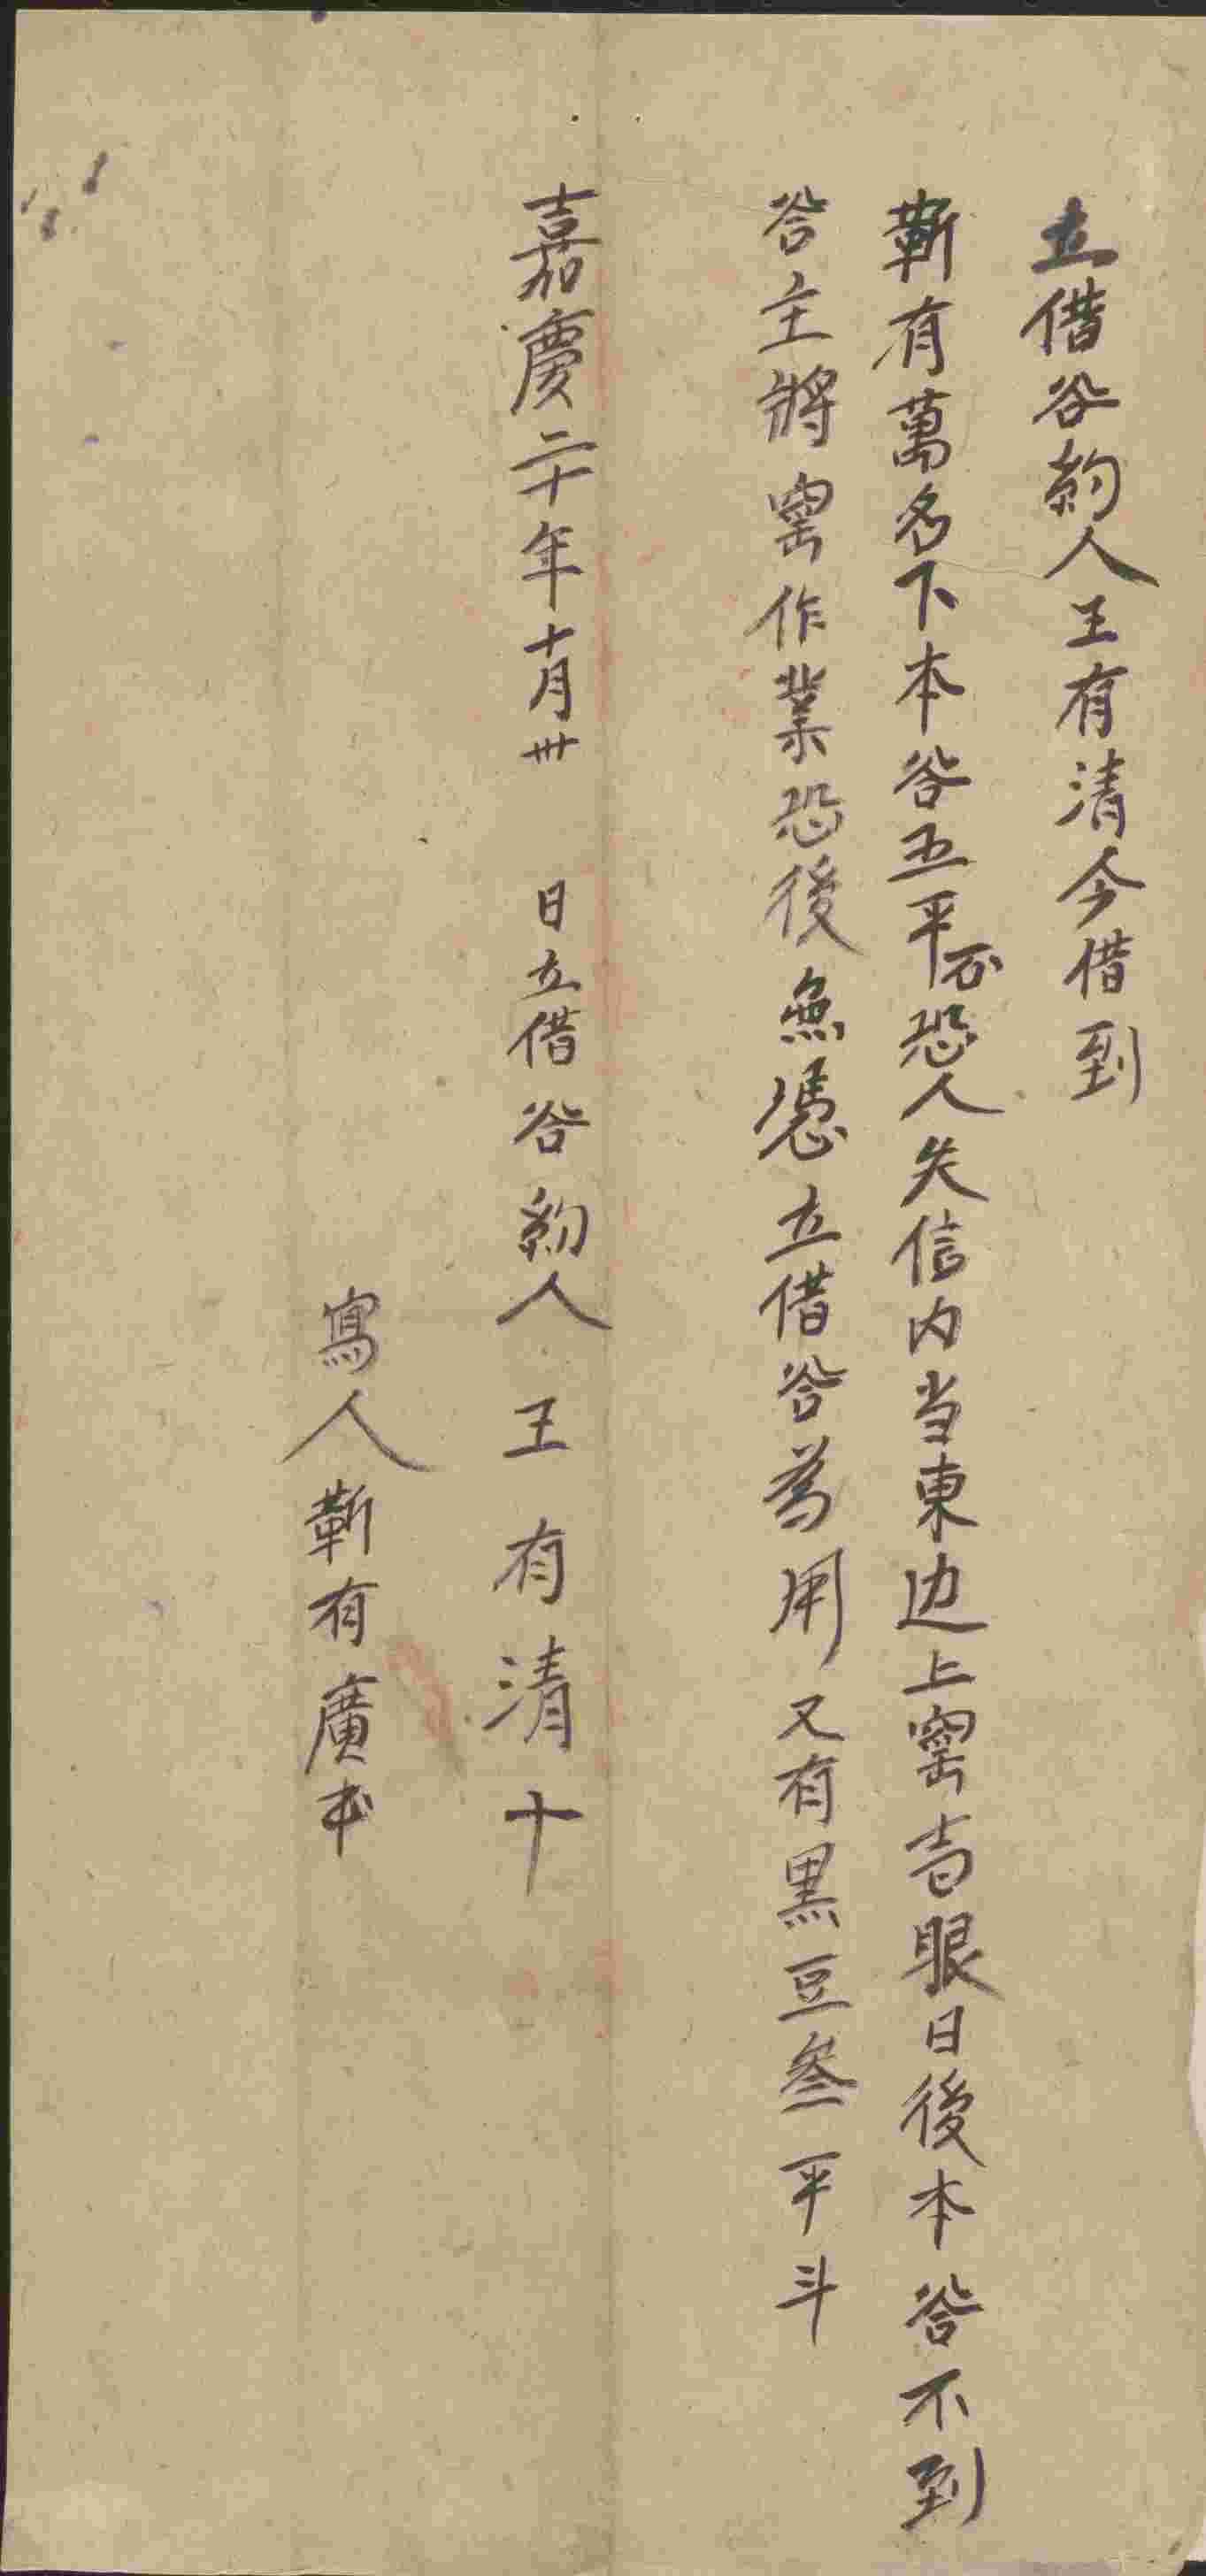 立借谷約人王有清今借到
靳有萬名下本谷五平石恐人失信内当東边上窑壱眼日後本谷不到
谷主將窑作業恐後無憑立借谷為用又有黑豆叁平斗
嘉慶二十年十月卅 日立借谷約人王有清十
寫人靳有廣书